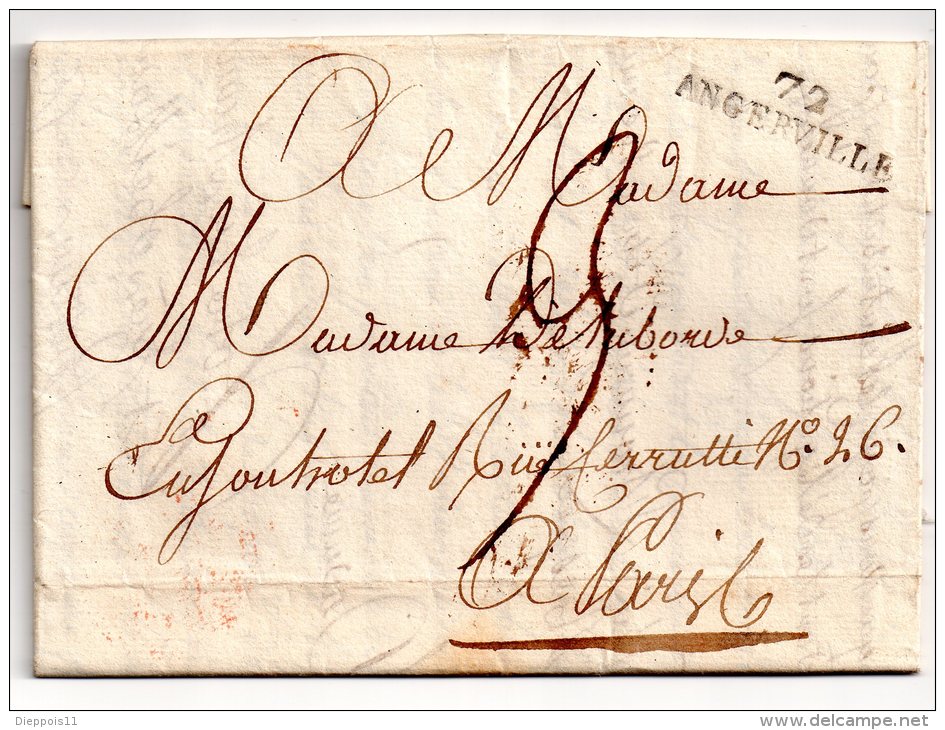 72
ANGERVILLE
A Madame
Madame Delaborde
En son hotel Rüe Cerrutti No. 26.
A Paris
3
Dieppois11
www.delcampe.net